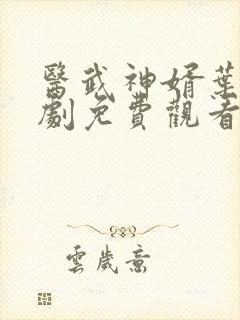 醫武神婿葉
劇免費觀看
雲歲意